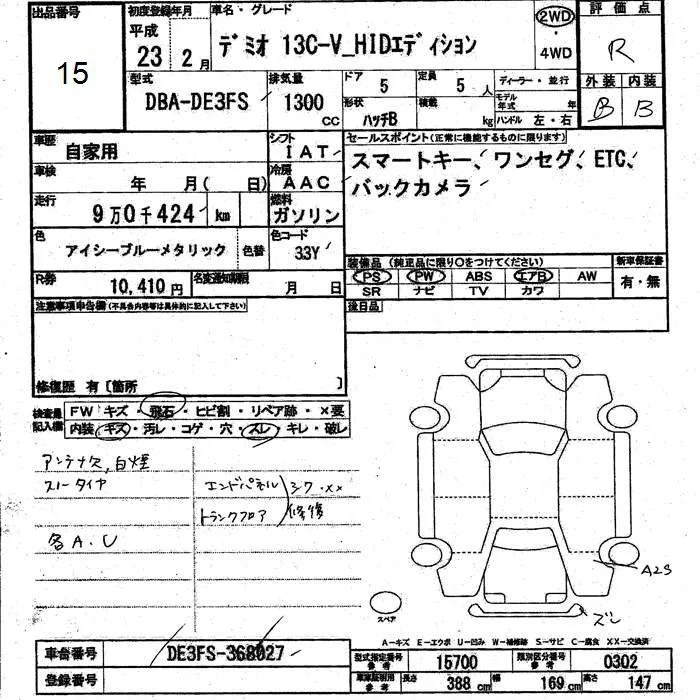 出品番号
15
初度登録年月
平成
23年 2月
車名・グレード
デミオ 13C-V_HIDエディション
2WD
4WD
評価点
R
型式
DBA-DE3FS
排気量
1300
cc
ドア
5
定員
5 人
形状
ハッチB
積載
kg
ディーラー・並行
モデル年式 年
ハンドル 左・右
外装 内装
B B
車歴
自家用
シフト
IAT
セールスポイント(正常に機能するものに限ります)
スマートキー、ワンセグ、ETC、
バックカメラ
車検
年 月( 日)
冷房
AAC
走行
9万0千424 km
燃料
ガソリン
色
アイシーブルーメタリック
色替
色コード
33Y
装備品 (純正品に限り○をつけてください)
PS PW ABS エアB AW
SR ナビ TV カワ
新車保証書
有・無
R券
10,410 円
名変通知期限
月 日
注意事項申告欄(不具合内容等は具体的に記入して下さい)
後日品
修復歴 有〔箇所 〕
検査員記入欄
FW キズ・飛石・ヒビ割・リペア跡・×要
内装 キズ・汚レ・コゲ・穴・スレ・キレ・破レ
アンテナ欠,白煙
スノータイヤ
エンドパネル
トランクフロア
シワ・××
修復
各A.U
A2S
ズレ
スペア
A-キズ E-エクボ U-凹み W-補修跡 S-サビ C-腐食 XX-交換済
車台番号
DE3FS-368027
登録番号
型式指定番号 参考
15700
類別区分番号 参考
0302
車庫証明用 参考
長さ 388 cm
幅 169 cm
高さ 147 cm